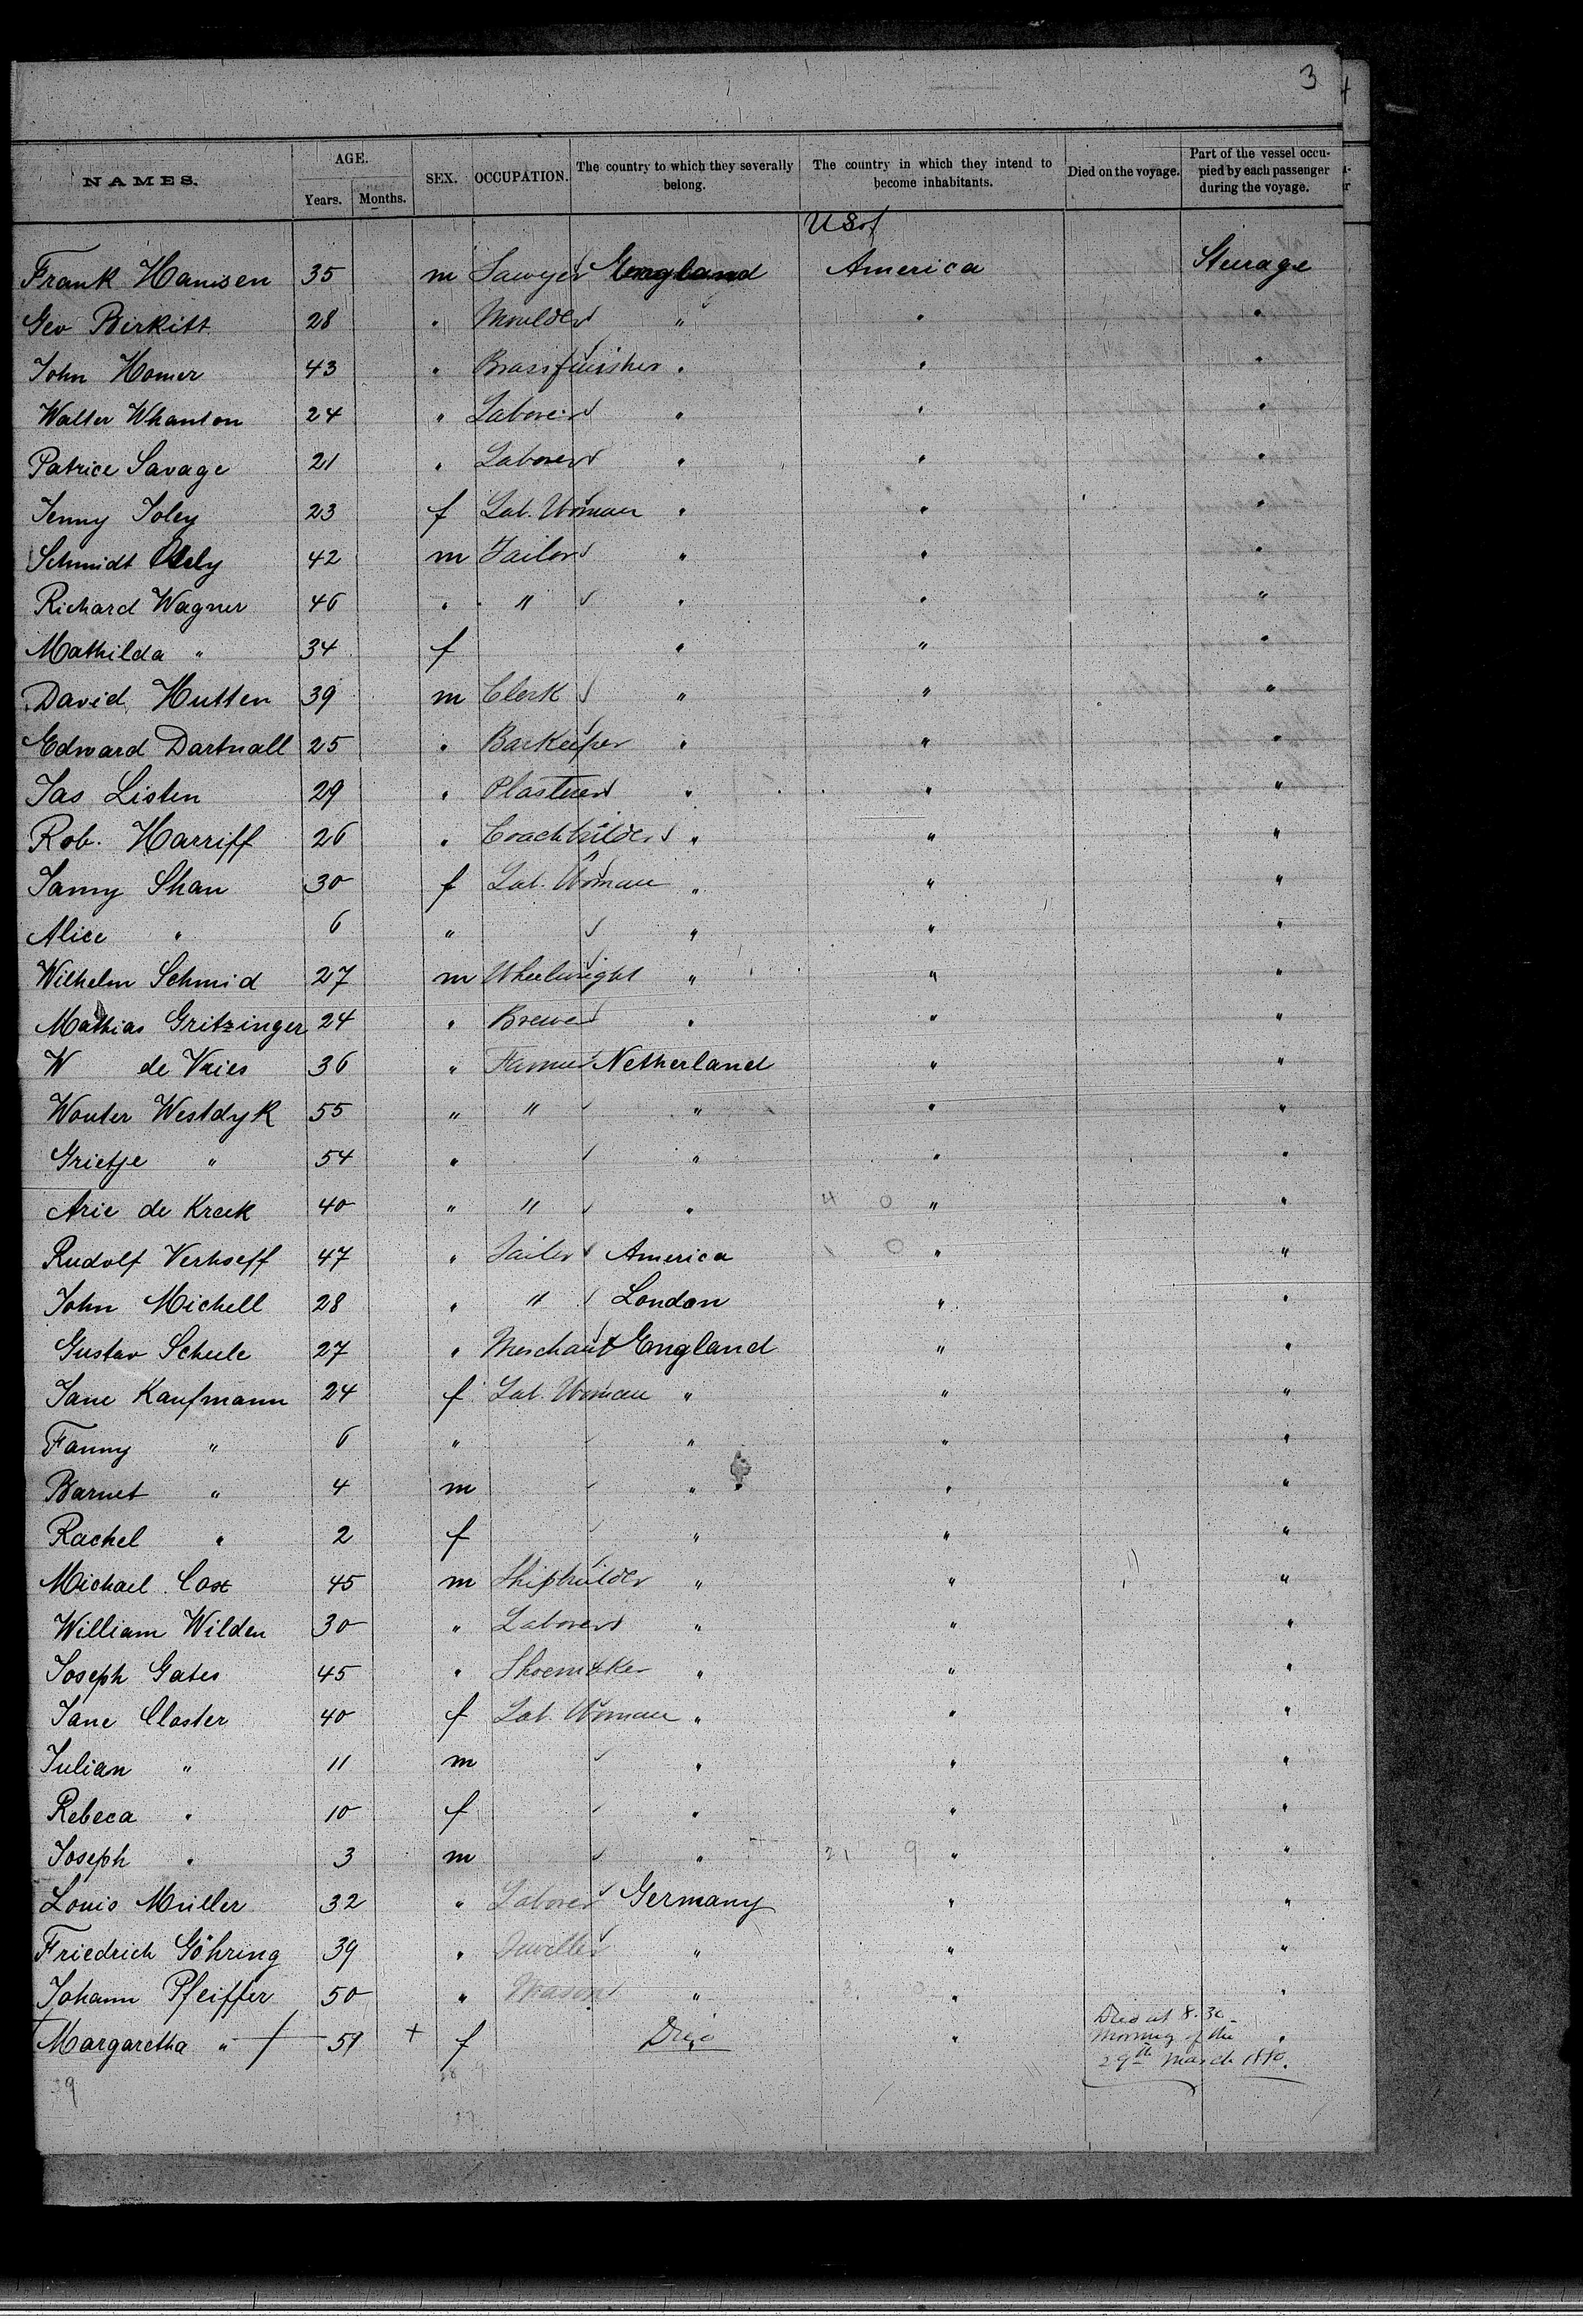 3
NAMES. AGE. Years. Months. SEX. OCCUPATION. The country to which they severally belong. The country in which they intend to become inhabitants. Died on the voyage. Part of the vessel occupied by each passenger during the voyage.
U S of
Frank Hanisen 35 m Sawyer England America Steerage
Geo Birkitt 28 " Moulder " " "
John Homer 43 " Brassfinisher " " "
Walter Whanton 24 " Laborer " " "
Patrice Savage 21 " Laborer " " "
Jenny Joley 23 f Lab. Woman " " "
Schmidt 42 m Tailor " " "
Richard Wagner 46 " " " " "
Mathilda " 34 f " " "
David Hutten 39 m Clerk " " "
Edward Dartnall 25 " Barkeeper " " "
Jas Listen 29 " Plasterer " " "
Rob. Harriff 26 " Coachbuilder " " "
Fanny Shan 30 f Lab. Woman " " "
Alice " 6 " " " "
Wilhelm Schmid 27 m Wheelwright " " "
Mathias Gritzinger 24 " Brewer " " "
W de Vries 36 " Farmer Netherland " "
Wouter Westdyk 55 " " " " "
Grietje " 54 " " " "
Arie de Kreek 40 " " " 4 0 " "
Rudolf Verhoeff 47 " Tailor America 1 0 " "
John Michell 28 " " London " "
Gustav Scheele 27 " Merchant England " "
Jane Kaufmann 24 f Lab. Woman " " "
Fanny " 6 " " " "
Barnet " 4 m " " "
Rachel " 2 f " " "
Michael Cox 45 m Shipbuilder " " "
William Wilden 30 " Laborer " " "
Joseph Gates 45 " Shoemaker " " "
Jane Closter 40 f Lab. Woman " " "
Julian " 11 m " " "
Rebeca " 10 f " " "
Joseph " 3 m " 21 9 " "
Louis Müller 32 " Laborer Germany " "
Friedrich Göhring 39 " Jweller " " "
Johann Pfeiffer 50 " Mason " 3 " "
Margaretha " 59 + f " Died at 8.30 morning of the 29th March 1880. "
39